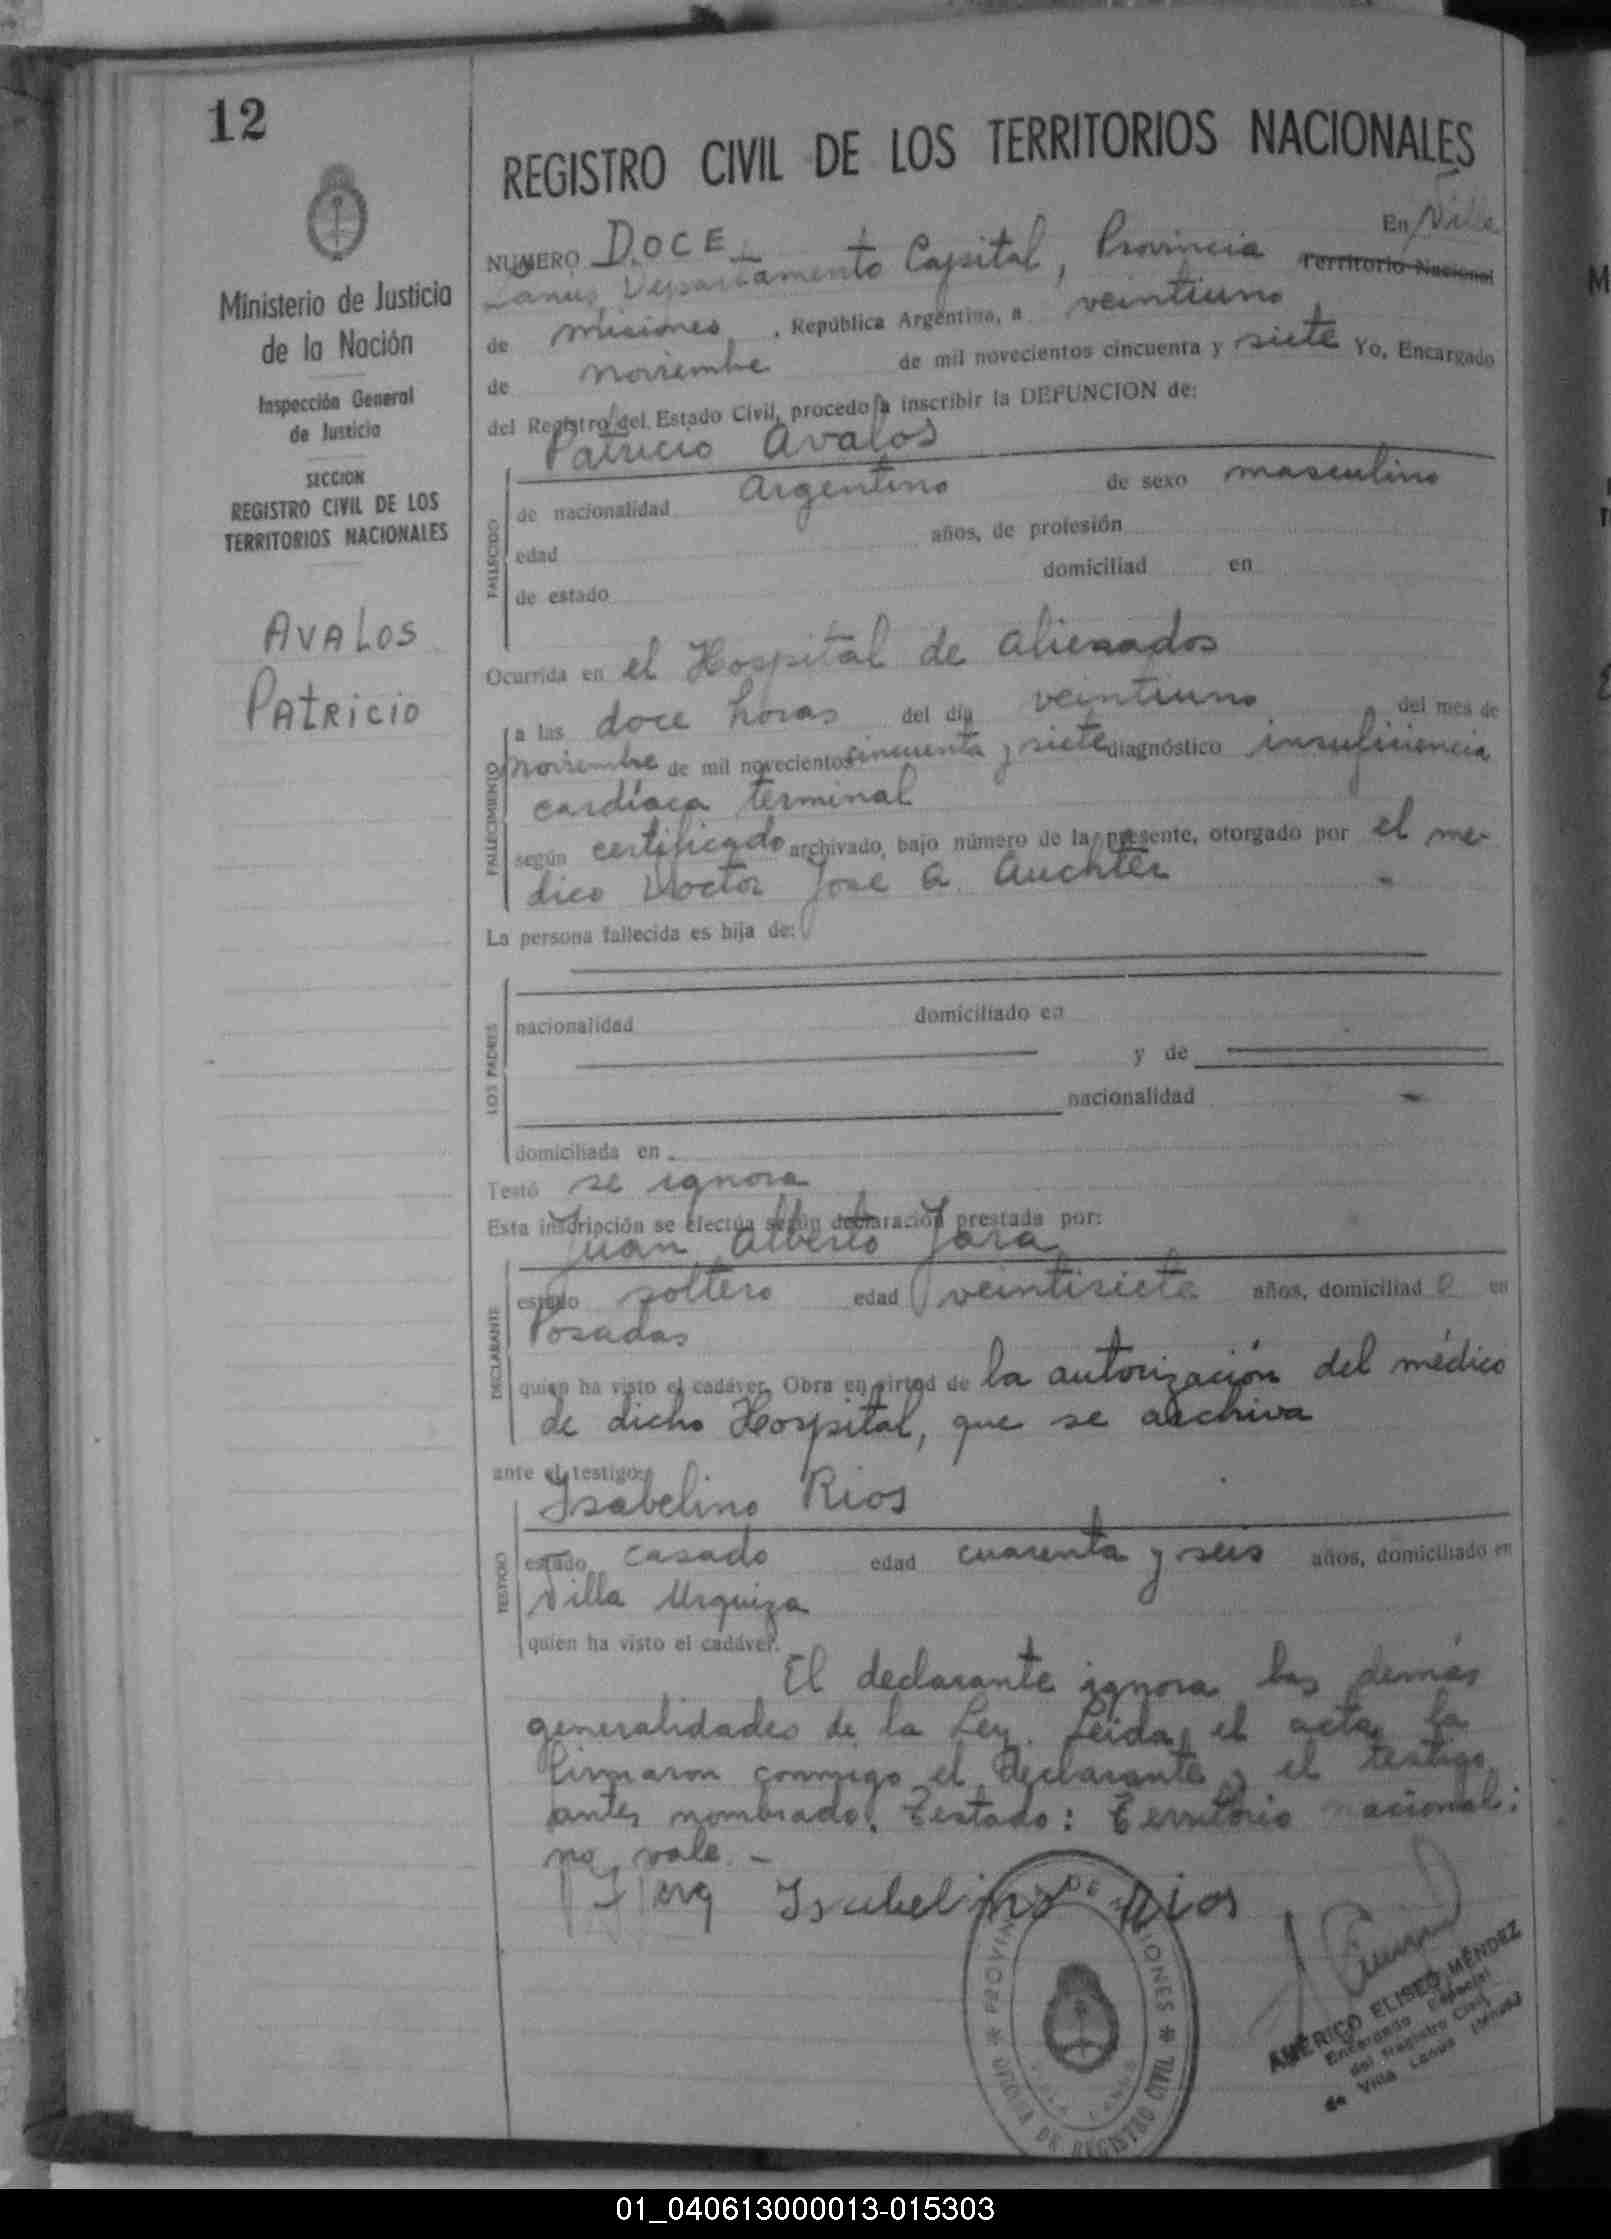 12
REGISTRO CIVIL DE LOS TERRITORIOS NACIONALES
Ministerio de Justicia
de la Nación
Inspección General
de Justicia
SECCION
REGISTRO CIVIL DE LOS
TERRITORIOS NACIONALES
AVALOS
PATRICIO
NUMERO DOCE En Villa
Lanus, Departamento Capital, Provincia Territorio Nacional
de Misiones, República Argentina, a veintiuno
de noviembre de mil novecientos cincuenta y siete Yo, Encargado
del Registro del Estado Civil, procedo a inscribir la DEFUNCION de:
Patricio Avalos
FALLECIDO
de nacionalidad Argentino de sexo masculino
edad años, de profesión
de estado domiciliad en
Ocurrida en el Hospital de Alienados
FALLECIMIENTO
a las doce horas del día veintiuno del mes de
noviembre de mil novecientos cincuenta y siete diagnóstico insuficiencia
cardíaca terminal
según certificado archivado, bajo número de la presente, otorgado por el me-
dico Doctor Jose A. Auchter
La persona fallecida es hija de:
LOS PADRES
nacionalidad domiciliado en
y de
nacionalidad
domiciliada en
Testó se ignora
Esta inscripción se efectúa según declaración prestada por:
Juan Alberto Jara
DECLARANTE
estado soltero edad veintisiete años, domiciliad o en
Posadas
quien ha visto el cadáver. Obra en virtud de la autorización del médico
de dicho Hospital, que se archiva
ante el testigo:
Isabelino Rios
TESTIGO
estado casado edad cuarenta y seis años, domiciliado en
Villa Urquiza
quien ha visto el cadáver.
El declarante ignora las demás
generalidades de la Ley. Leida el acta, la
firmaron conmigo el declarante y el testigo
antes nombrado. Testado: Territorio nacional:
no vale.-
Isabelino Rios
PROVINCIA DE MISIONES
OFICINA DE REGISTRO CIVIL
AMÉRICO ELISEO MÉNDEZ
Encargado Especial
del Registro Civil
de Villa Lanus (Misiones)
01_040613000013-015303